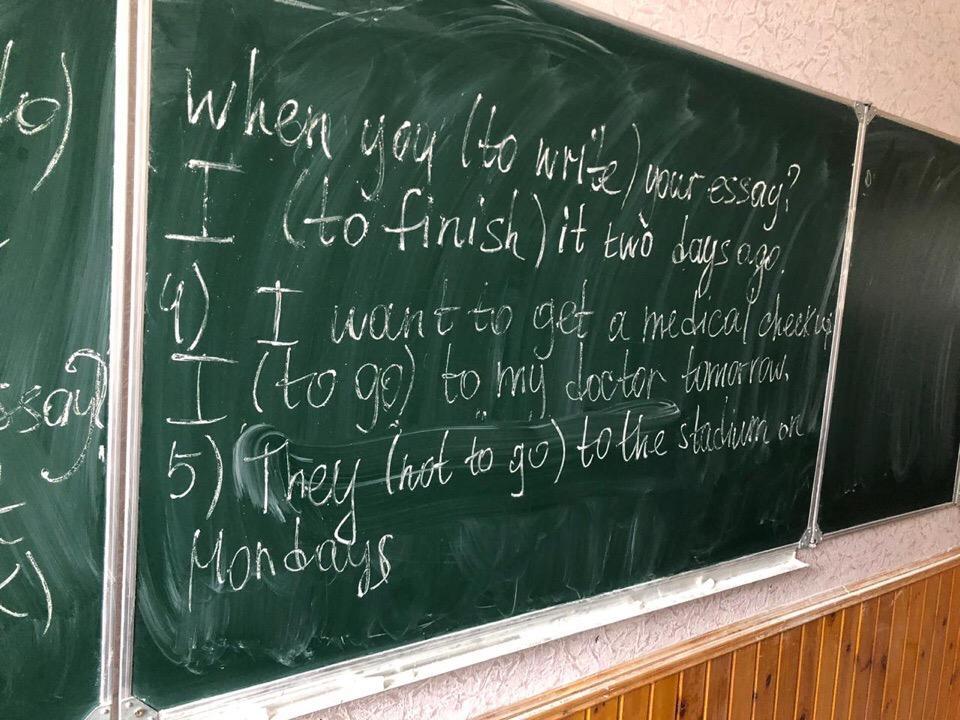 When you (to write) your essay?
I (to finish) it two days ago.
4) I want to get a medical checkup
I (to go) to my doctor tomorrow.
5) They (not to go) to the stadium on
Mondays